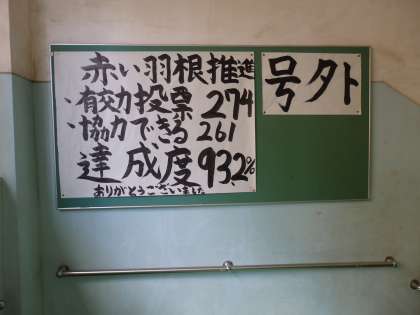 赤い羽根推進
、有効投票 274
、協力できる 261
達成度 93.2%
ありがとうございました
号外